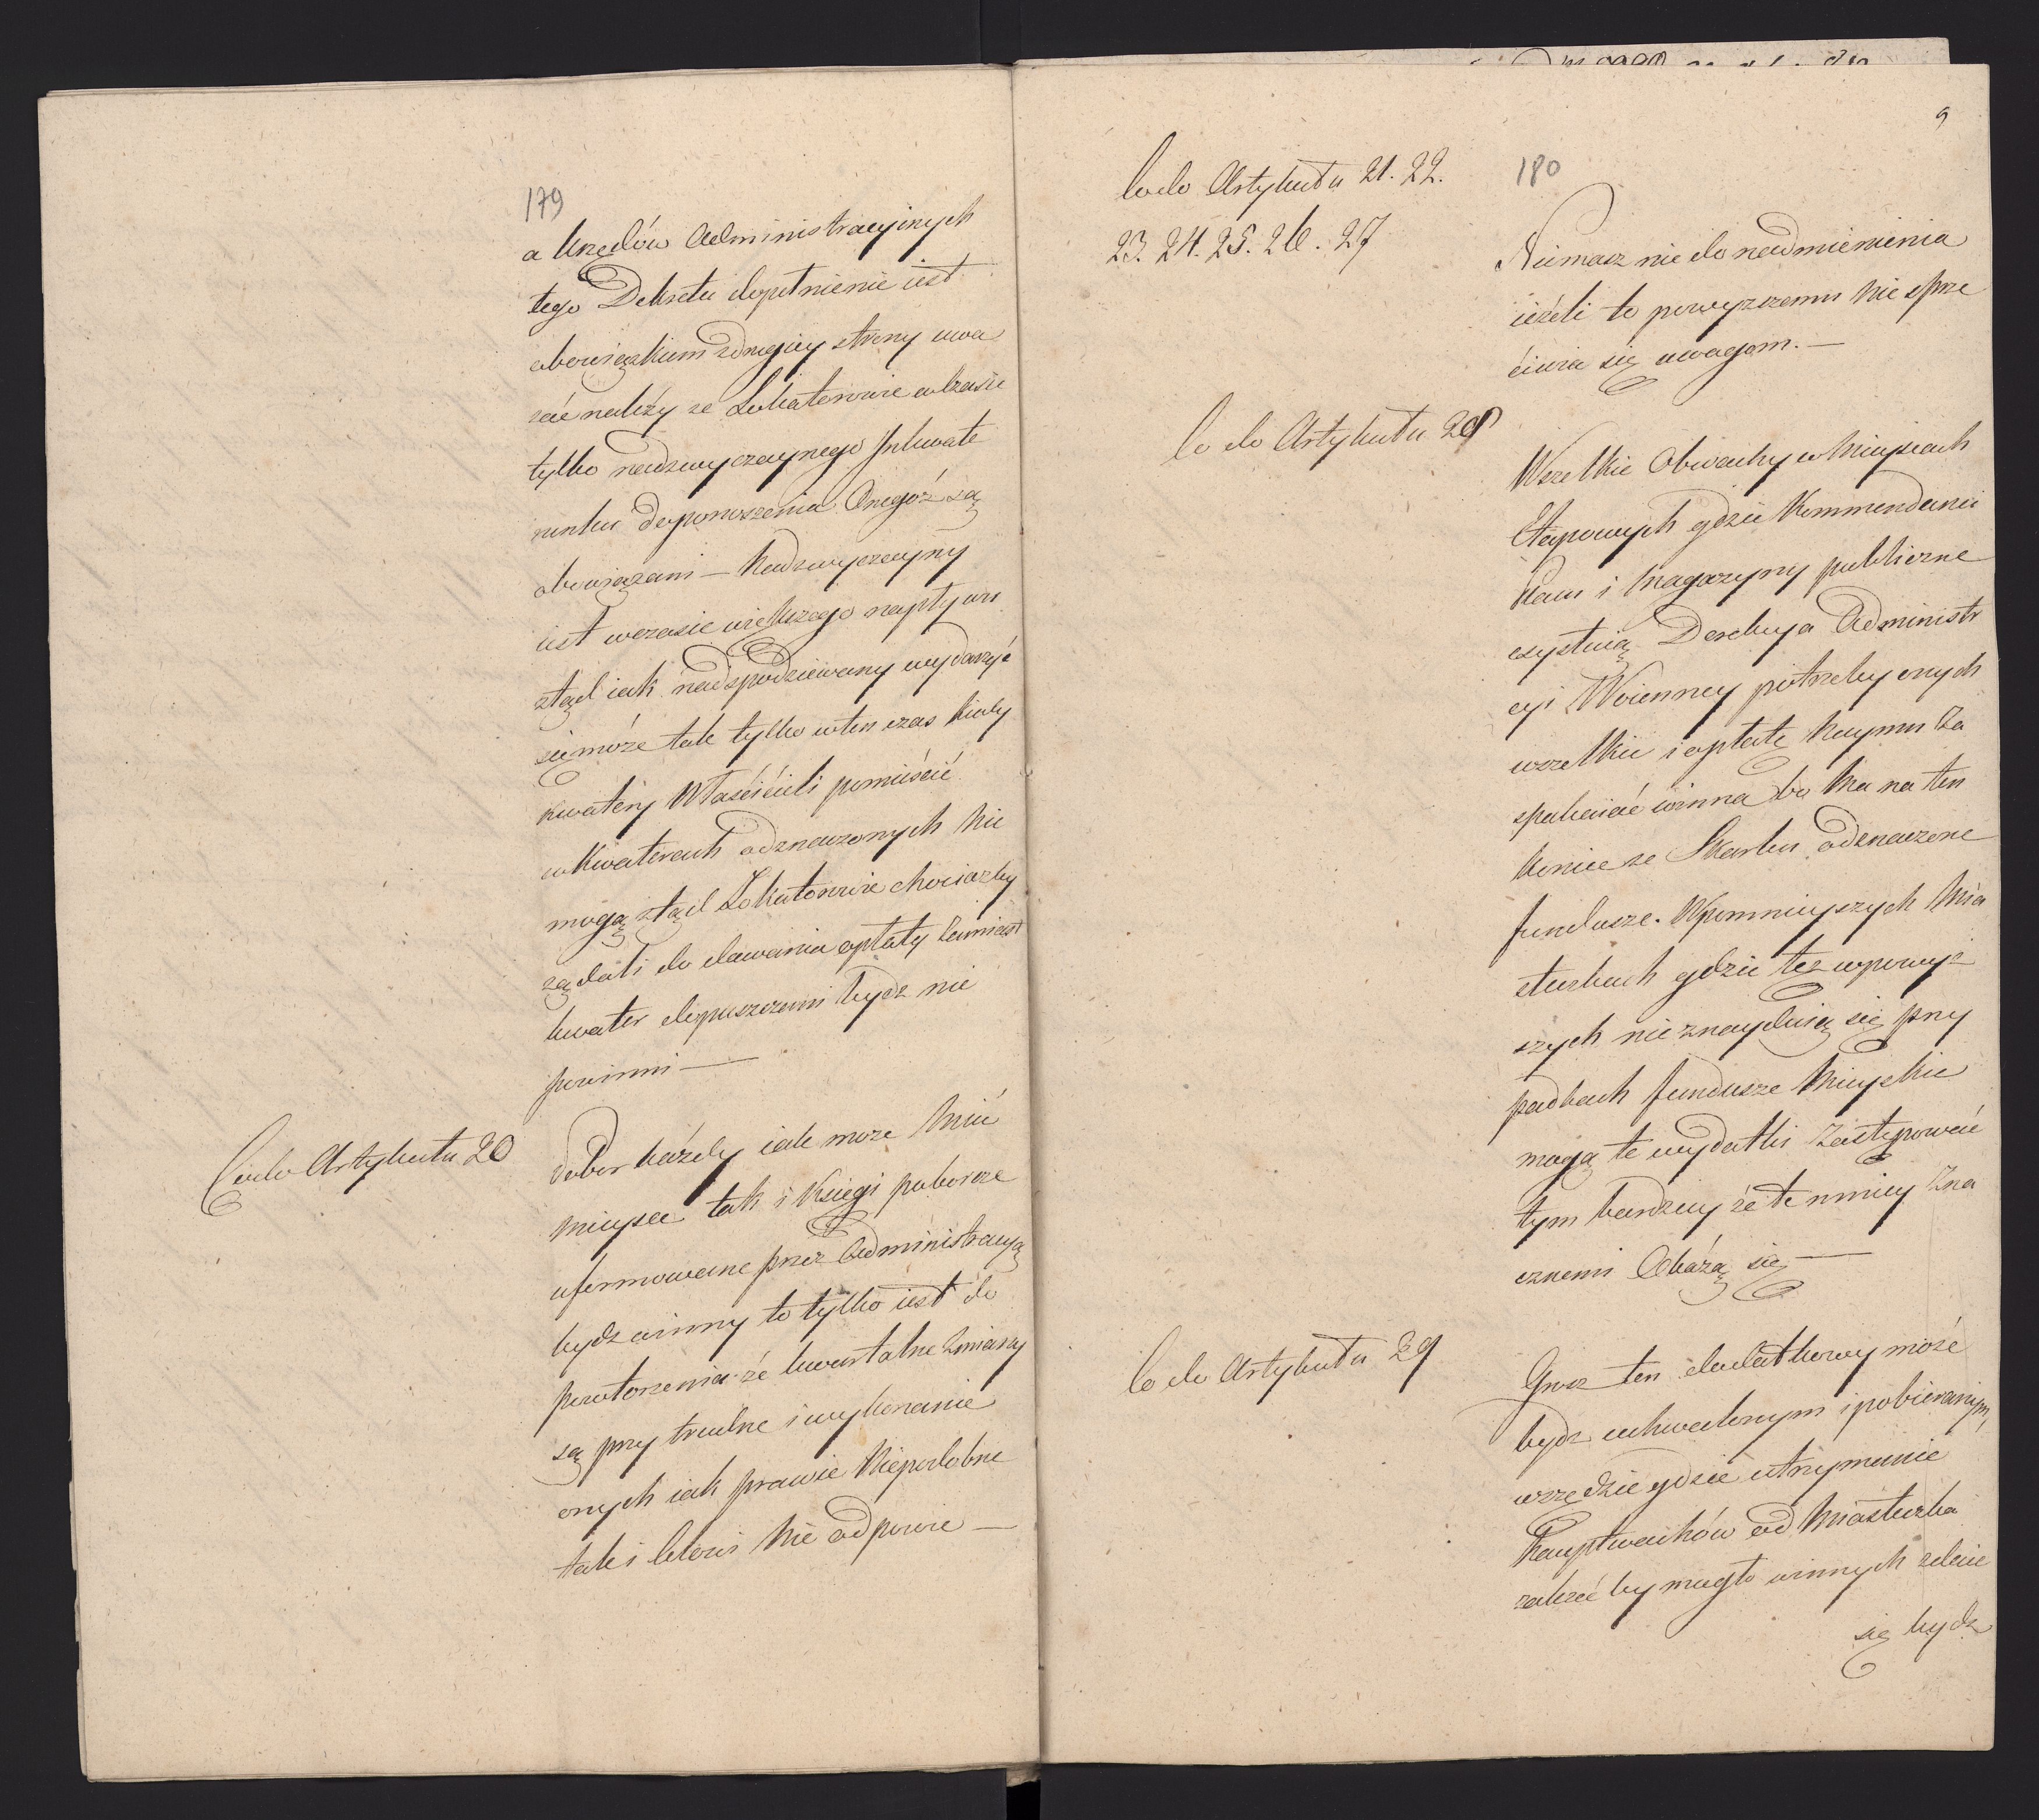 179
a Urzędów Administracyinych
tego Dekretu dopełnienie iest
obowiązkiem zdrugiey strony uwa
żać należy ze Lokatorowie w czasie
tylko nadzwyczaynego Inkwate
runku do ponoszenia Onegoż są
obowiązani — Nadzwyczayny
iest wczasie większego napływu
ztąd iak nadspodziewany wydarzyć
się może tak tylko wten czas kiedy
kwatery Właścicieli pomieścić
w Kwaterach odznaczonych nie
mogą ztąd Lokatorowie chociażby
żądali do dawania opłaty zamiast
kwater dopuszczeni bydz nie
powinni —
Co do Artykułu 20
Pobor każdy iak może mieć
mieysce tak i Księgi poborcze
uformowane przez Administracyą
bydz winny to tylko iest do
powtorzenia że kwartalne zmiany
są przytrudne i wykonanie
onych iak prawie niepodobne
tak i Celowi nie odpowie —
9
180
Co do Artykułu 21. 22.
23. 24. 25. 26. 27
Niemasz nic do nadmienienia
ieżeli to powyższemu nie sprze
ciwia się uwagom. —
Co do Artykułu 28
Wszelkie Obwachy w Mieyscach
Etapowych gdzie Kommendanci
Placu i Magazyny publiczne
exystuią Dyrekcya Administr
cyi Woienney potrzeby onych
wszelkie i opłatę Naymu za
spakaiać winna bo ma na ten
koniec ze Skarbu odznaczone
fundusze. Wpomnieyszych Mia
steczkach gdzie też wpowyż
szych nie znayduią się przy
padkach fundusze Mieyskie
mogą te wydatki zastępować
tym bardziey że te mniey zna
cznemi Okażą się —
Co do Artykułu 29
Grosz ten dodatkowy może
bydz uchwalonym i pobieranym,
wszędzie gdzie utrzymanie
Hauptwachów od Miasteczka
zależeć by mogło winnych zdaie
się bydz